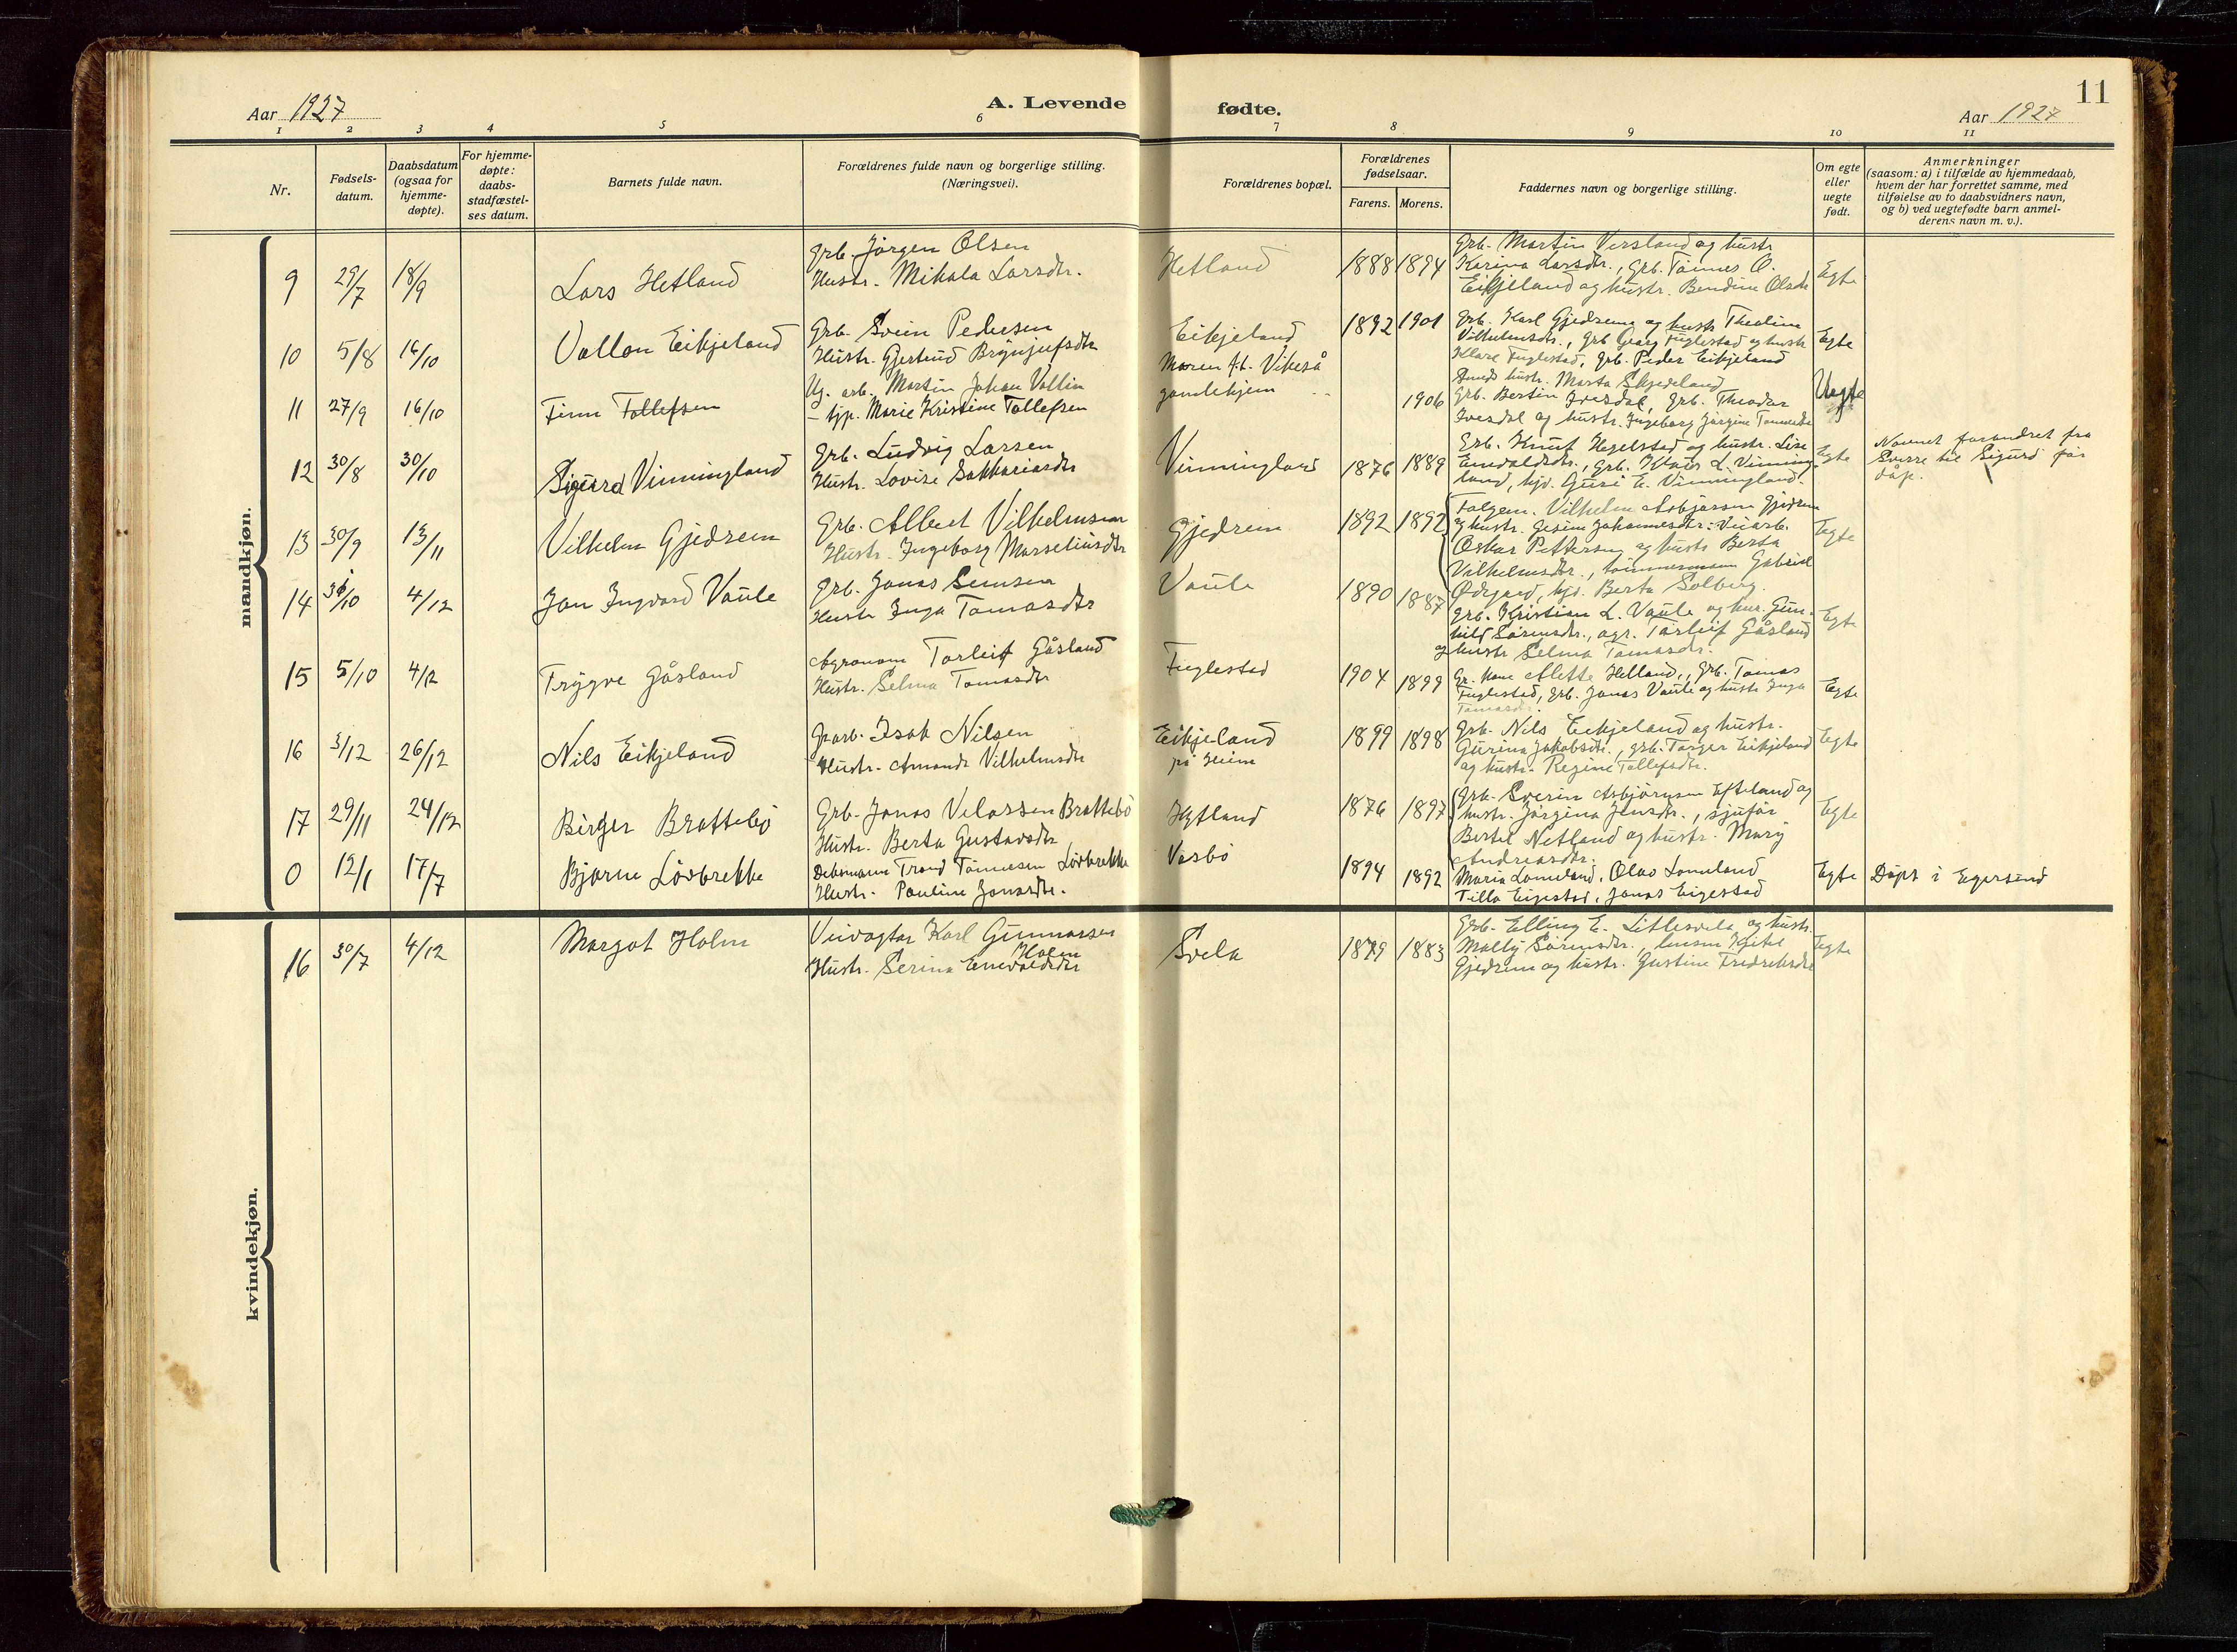 11
Aar 1927
A. Levende fødte.
Aar 1927
1 2 3 4 5 6 7 8 9 10 11
Nr.
Fødsels-
datum.
Daabsdatum
(ogsaa for
hjemme-
døpte).
For hjemme-
døpte:
daabs-
stadfæstel-
ses datum.
Barnets fulde navn.
Forældrenes fulde navn og borgerlige stilling.
(Næringsvei).
Forældrenes bopæl.
Forældrenes
fødselsaar.
Farens. Morens.
Faddernes navn og borgerlige stilling.
Om egte
eller
uegte
født.
Anmerkninger
(saasom: a) i tilfælde av hjemmedaab,
hvem der har forrettet samme, med
tilføielse av to daabsvidners navn,
og b) ved uegtefødte barn anmel-
derens navn m. v.).
mandkjøn.
9 29/7 18/9 Lars Hetland
Grb. Jörgen Olsen
Hustr. Mikala Larsdtr.
Hetland 1888 1894
Grb. Martin Versland og hustr
Karina Larsdtr., Grb. Tönnes O.
Eikjeland og hustr. Bendine Olsdtr
Egte
10 5/8 16/10 Vallon Eikjeland
Grb. Svein Pedersen
Hustr. Gjertrud Brynjufsdtr
Eikjeland 1892 1901
Grb. Karl Gjedrem og hustr Theoline
Vilhelmsdtr., Grb Georg Fuglestad og hustr
Klare Fuglestad, Grb. Peder Eikjeland
Egte
11 27/9 16/10 Finn Tollefsen
Ug. arb. Martin Johan Vallin
— tjp. Marie Kristine Tollefsen
Maren A.L. Vikeså
gamlehjem
1906
hustr. Marta Skjedeland
Grb. Bertin Ivesdal, Grb. Theodor
Ivesdal og hustr. Ingeborg Jörgine
Uegte
12 30/8 30/10 Sigurd Vinningland
Grb. Ludvig Larsen
Hustr. Lovise Sakkariasdtr
Vinningland 1876 1889
Grb. Knut Hegelstad og hustr. Lise
Enevaldsdtr., Grb. L. Vinning-
land, hjv. Guri E. Vinningland.
Egte
Navnet forandret fra
Sverre til Sigurd før
dåp.
13 30/9 13/11 Vilhelm Gjedrem
Grb. Albert Vilhelmsen
Hustr. Ingeborg Marseliusdtr
Gjedrem 1892 1892
Folgem. Vilhelm Asbjörnsen Gjedrem
og hustr. Gesine Johannesdtr: Veiarb.
Oskar Pettersen og hustr Berta
Vilhelmsdtr., tömmermann Gabriel
Ødegaard, hjv. Berta Solberg.
Egte
14 4/12 Jan Ingvard Vaule
Grb. Jonas Semsen
Hustr Inga Tomasdtr
Vaule 1890 1887
Grb. Kristian L. Vaule og hus. Gun-
hild Sörensdtr., agr. Torleif Gåsland
og hustr Selma Tomasdtr.
Egte
15 5/10 4/12 Trygve Gåsland
Agronom Torleif Gåsland
Hustr. Selma Tomasdtr
Fuglestad 1904 1899
Gr. kone Alette Helland, Grb. Tomas
Fuglestad, Grb. Jonas Vaule og hustr Inga
Tomasdtr.
Egte
16 3/12 26/12 Nils Eikjeland
Grarb. Isak Nilsen
Hustr. Amanda Vilhelmsdtr
Eikjeland
på Heien
1899 1898
Grb. Nils Eikjeland og hustr.
Gurina Jakobsdtr., grb. Torger Eikjeland
og hustr. Regine Tollefsdtr.
Egte
17 29/11 24/12 Birger Brattebø
Grb. Jonas Velassen Brattebö
Hustr. Berta Gustavsdtr
Hytland 1876 1897
Grb. Sverin Asbjörnsen Efteland og
hustr. Jörgina Jensdtr., sjufør
Bertel Netland og hustr. Mary
Andreasdtr.
Egte
0 12/1 17/7 Bjarne Lövbrekke
Trond Tönnesen Lövbrekke
Hustr. Pauline Jonasdtr.
Vasbö 1894 1892
Maria Lomeland, Olav Lomeland
Tilla Eigestad, Jonas Eigestad
Egte Döpt i Egersund
kvindekjøn.
16 30/7 4/12 Margot Holm
Veivogter Karl Gunnarsen
Holm
Hustr. Serina Enevaldsdtr
Svela 1879 1883
Grb. Elling E. Litlesvela og hustr.
Mally Sörensdtr., Ketel
Gjedrem og hustr. Gustine Fredreksdtr
Egte